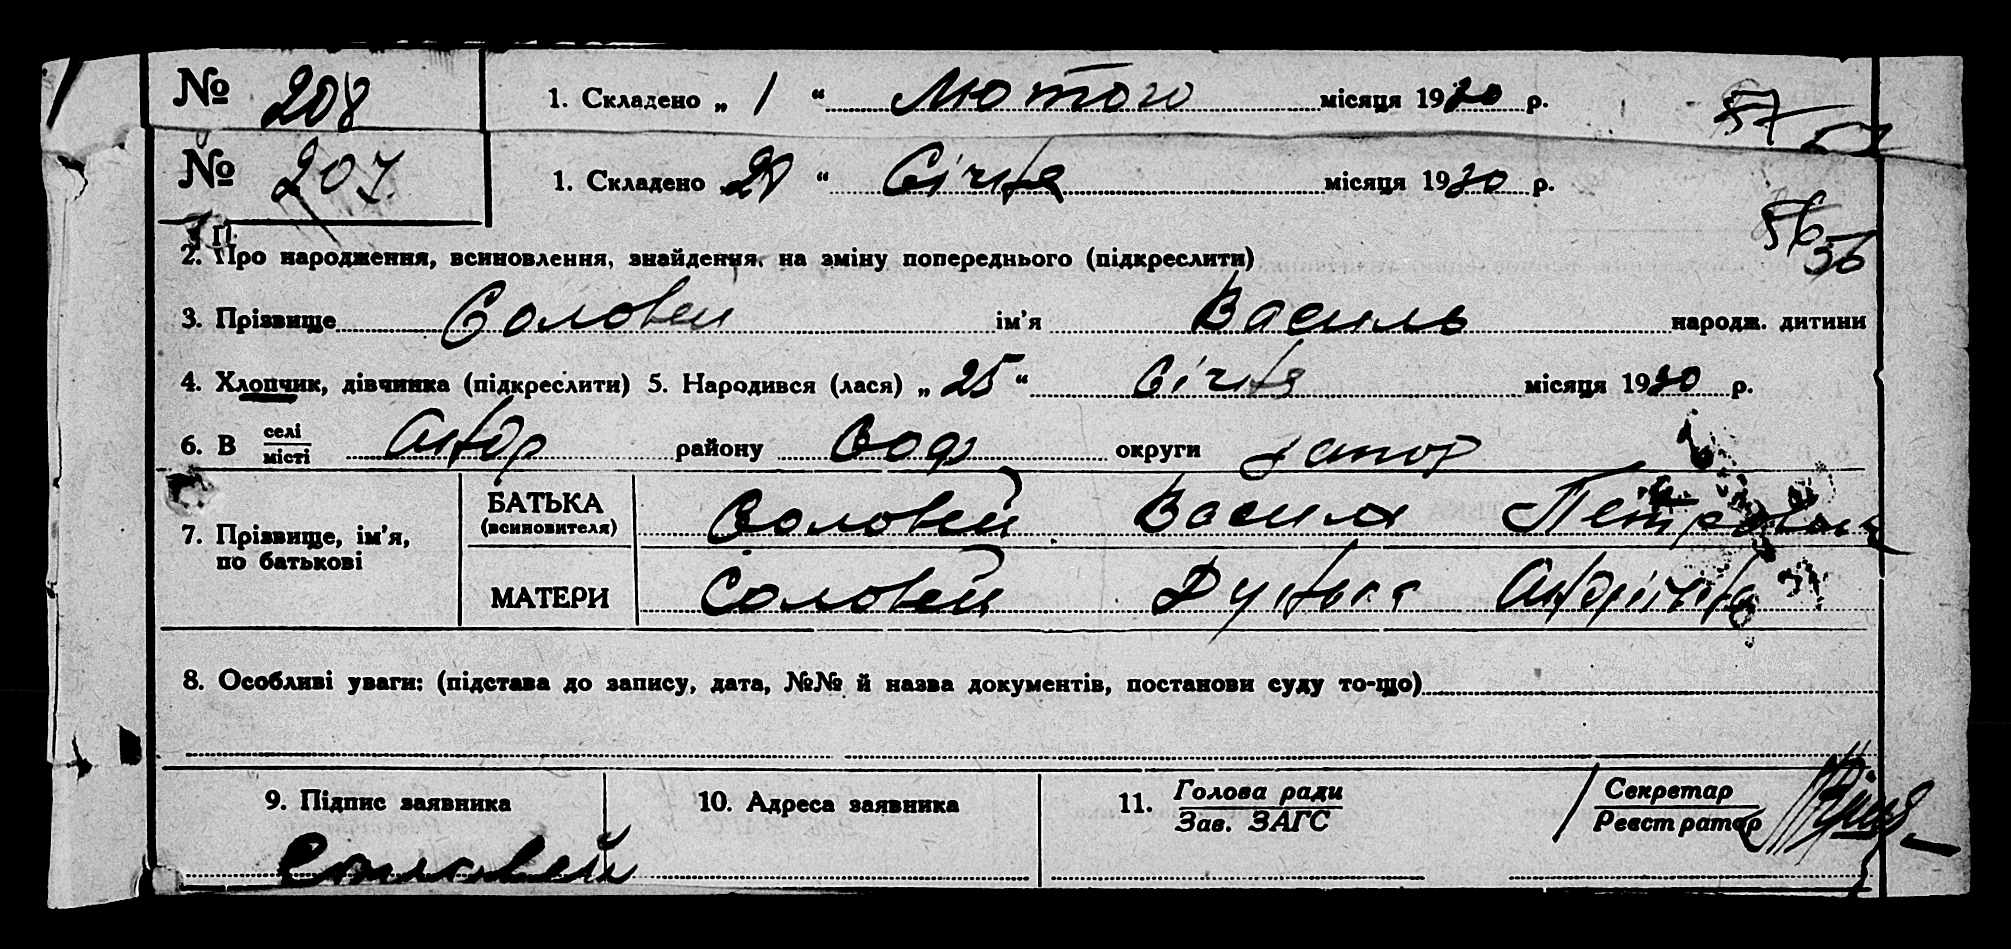 № 208 1. Складено „ 1 “ Лютого місяця 1930 р. 57
№ 207 1. Складено 29 “ Січня місяця 1930 р.
56
2. Про народження, всиновлення, знайдення, на зміну попереднього (підкреслити) 56
3. Прізвище Соловей ім'я Василь народж. дитини
4. Хлопчик, дівчинка (підкреслити) 5. Народився (лася) „ 25 “ Січня місяця 1930 р.
6. В селі місті Андр району Соф округи Запор
7. Прізвище, ім'я, по батькові
БАТЬКА (всиновителя) Соловей Василя Петрович
МАТЕРИ Соловей Дунька Андріївна
8. Особливі уваги: (підстава до запису, дата, №№ й назва документів, постанови суду то-що)
9. Підпис заявника 10. Адреса заявника 11. Голова ради Зав. ЗАГС / Секретар Реєстратор
Соловей